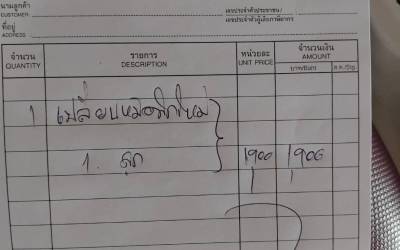 นามลูกค้า
CUSTOMER
เลขประจำตัวประชาชน /
เลขประจำตัวผู้เสียภาษีอากร
ที่อยู่
ADDRESS
จำนวน รายการ หน่วยละ จำนวนเงิน
QUANTITY DESCRIPTION UNIT PRICE AMOUNT
บาท/Baht ส.ต./Stg.
1 เปลี่ยนหม้อพักใหม่
1. ลูก 1900 1900